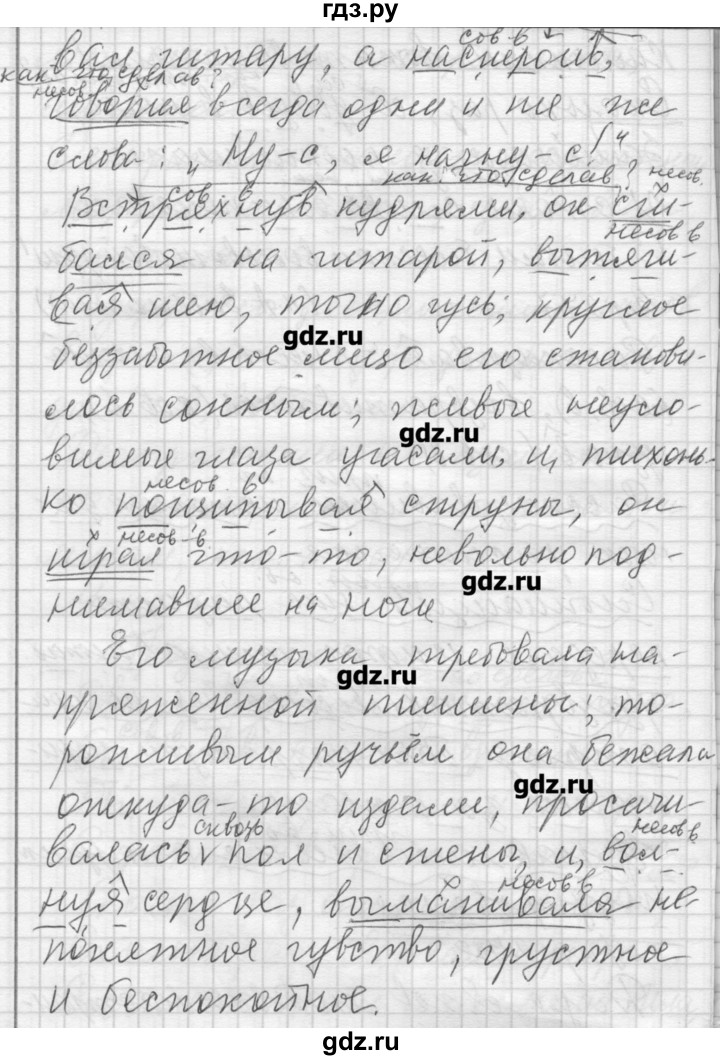 гдз.ру
вал гитару, а настроив,
сов. в
как? что сделав?
несов.
говорил всегда одни и те же
слова: „Ну-с, я начну-с!"
как? что сделав? несов.
сов. в
Встряхнув кудрями, он сги-
несов в
бался на гитарой, вытяги-
вая шею, точно гусь; круглое
gdz.ru
беззаботное лицо его станови-
лось сонным; живые неуло-
gdz.ru
вимые глаза угасали, и, тихонь-
несов. в
ко пощипывая струны, он
несов-в
играл что-то, невольно под-
gdz.ru
нимавшее на ноги
Его музыка требовала на-
gdz.ru
пряженной тишины; то-
ропливым ручьём она бежала
gdz.ru
откуда-то издали, просачи-
сквозь
несов в
валась V пол и стены, и, вол-
несов в
нуя сердце, выманивала не-
понятное чувство, грустное
и беспокойное.
gdz.ru